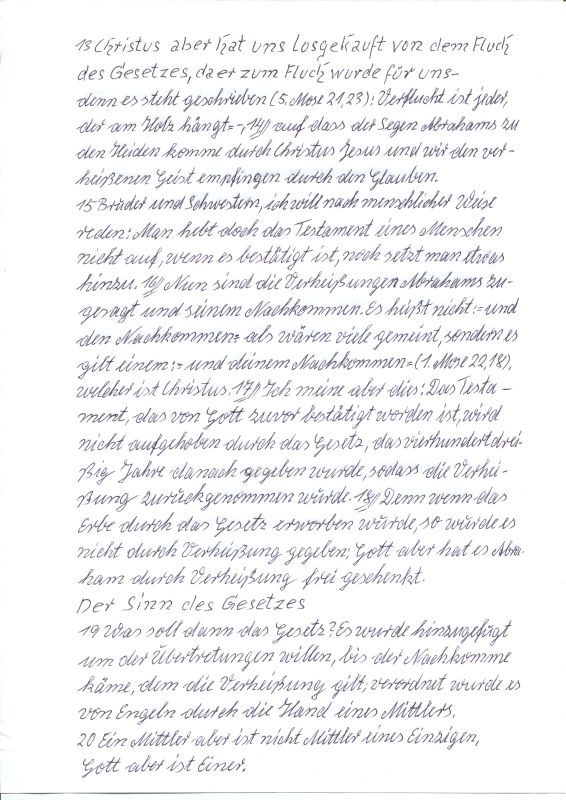 13 Christus aber hat uns losgekauft von dem Fluch
des Gesetzes, da er zum Fluch wurde für uns–
denn es steht geschrieben (5. Mose 21,23): Verflucht ist jeder,
der am Holz hängt=–, 14// auf dass der Segen Abrahams zu
den Heiden komme durch Christus Jesus und wir den ver-
heißenen Geist empfingen durch den Glauben.
15 Brüder und Schwestern, ich will nach menschlicher Weise
reden: Man hebt doch das Testament eines Menschen
nicht auf, wenn es bestätigt ist, noch setzt man etwas
hinzu. 16// Nun sind die Verheißungen Abrahams zu-
gesagt und seinem Nachkommen. Es heißt nicht:= und
den Nachkommen= als wären viele gemeint, sondern es
gilt einem:= und deinem Nachkommen= (1. Mose 22,18),
welcher ist Christus. 17// Ich meine aber dies: Das Testa-
ment, das von Gott zuvor bestätigt worden ist, wird
nicht aufgehoben durch das Gesetz, das vierhundertdrei-
ßig Jahre danach gegeben wurde, sodass die Verhei-
ßung zurückgenommen würde. 18// Denn wenn das
Erbe durch das Gesetz erworben würde, so würde es
nicht durch Verheißung gegeben; Gott aber hat es Abra-
ham durch Verheißung frei geschenkt.
Der Sinn des Gesetzes
19 Was soll dann das Gesetz? Es wurde hinzugefügt
um der Übertretungen willen, bis der Nachkomme
käme, dem die Verheißung gilt; verordnet wurde es
von Engeln durch die Hand eines Mittlers.
20 Ein Mittler aber ist nicht Mittler eines Einzigen,
Gott aber ist Einer.